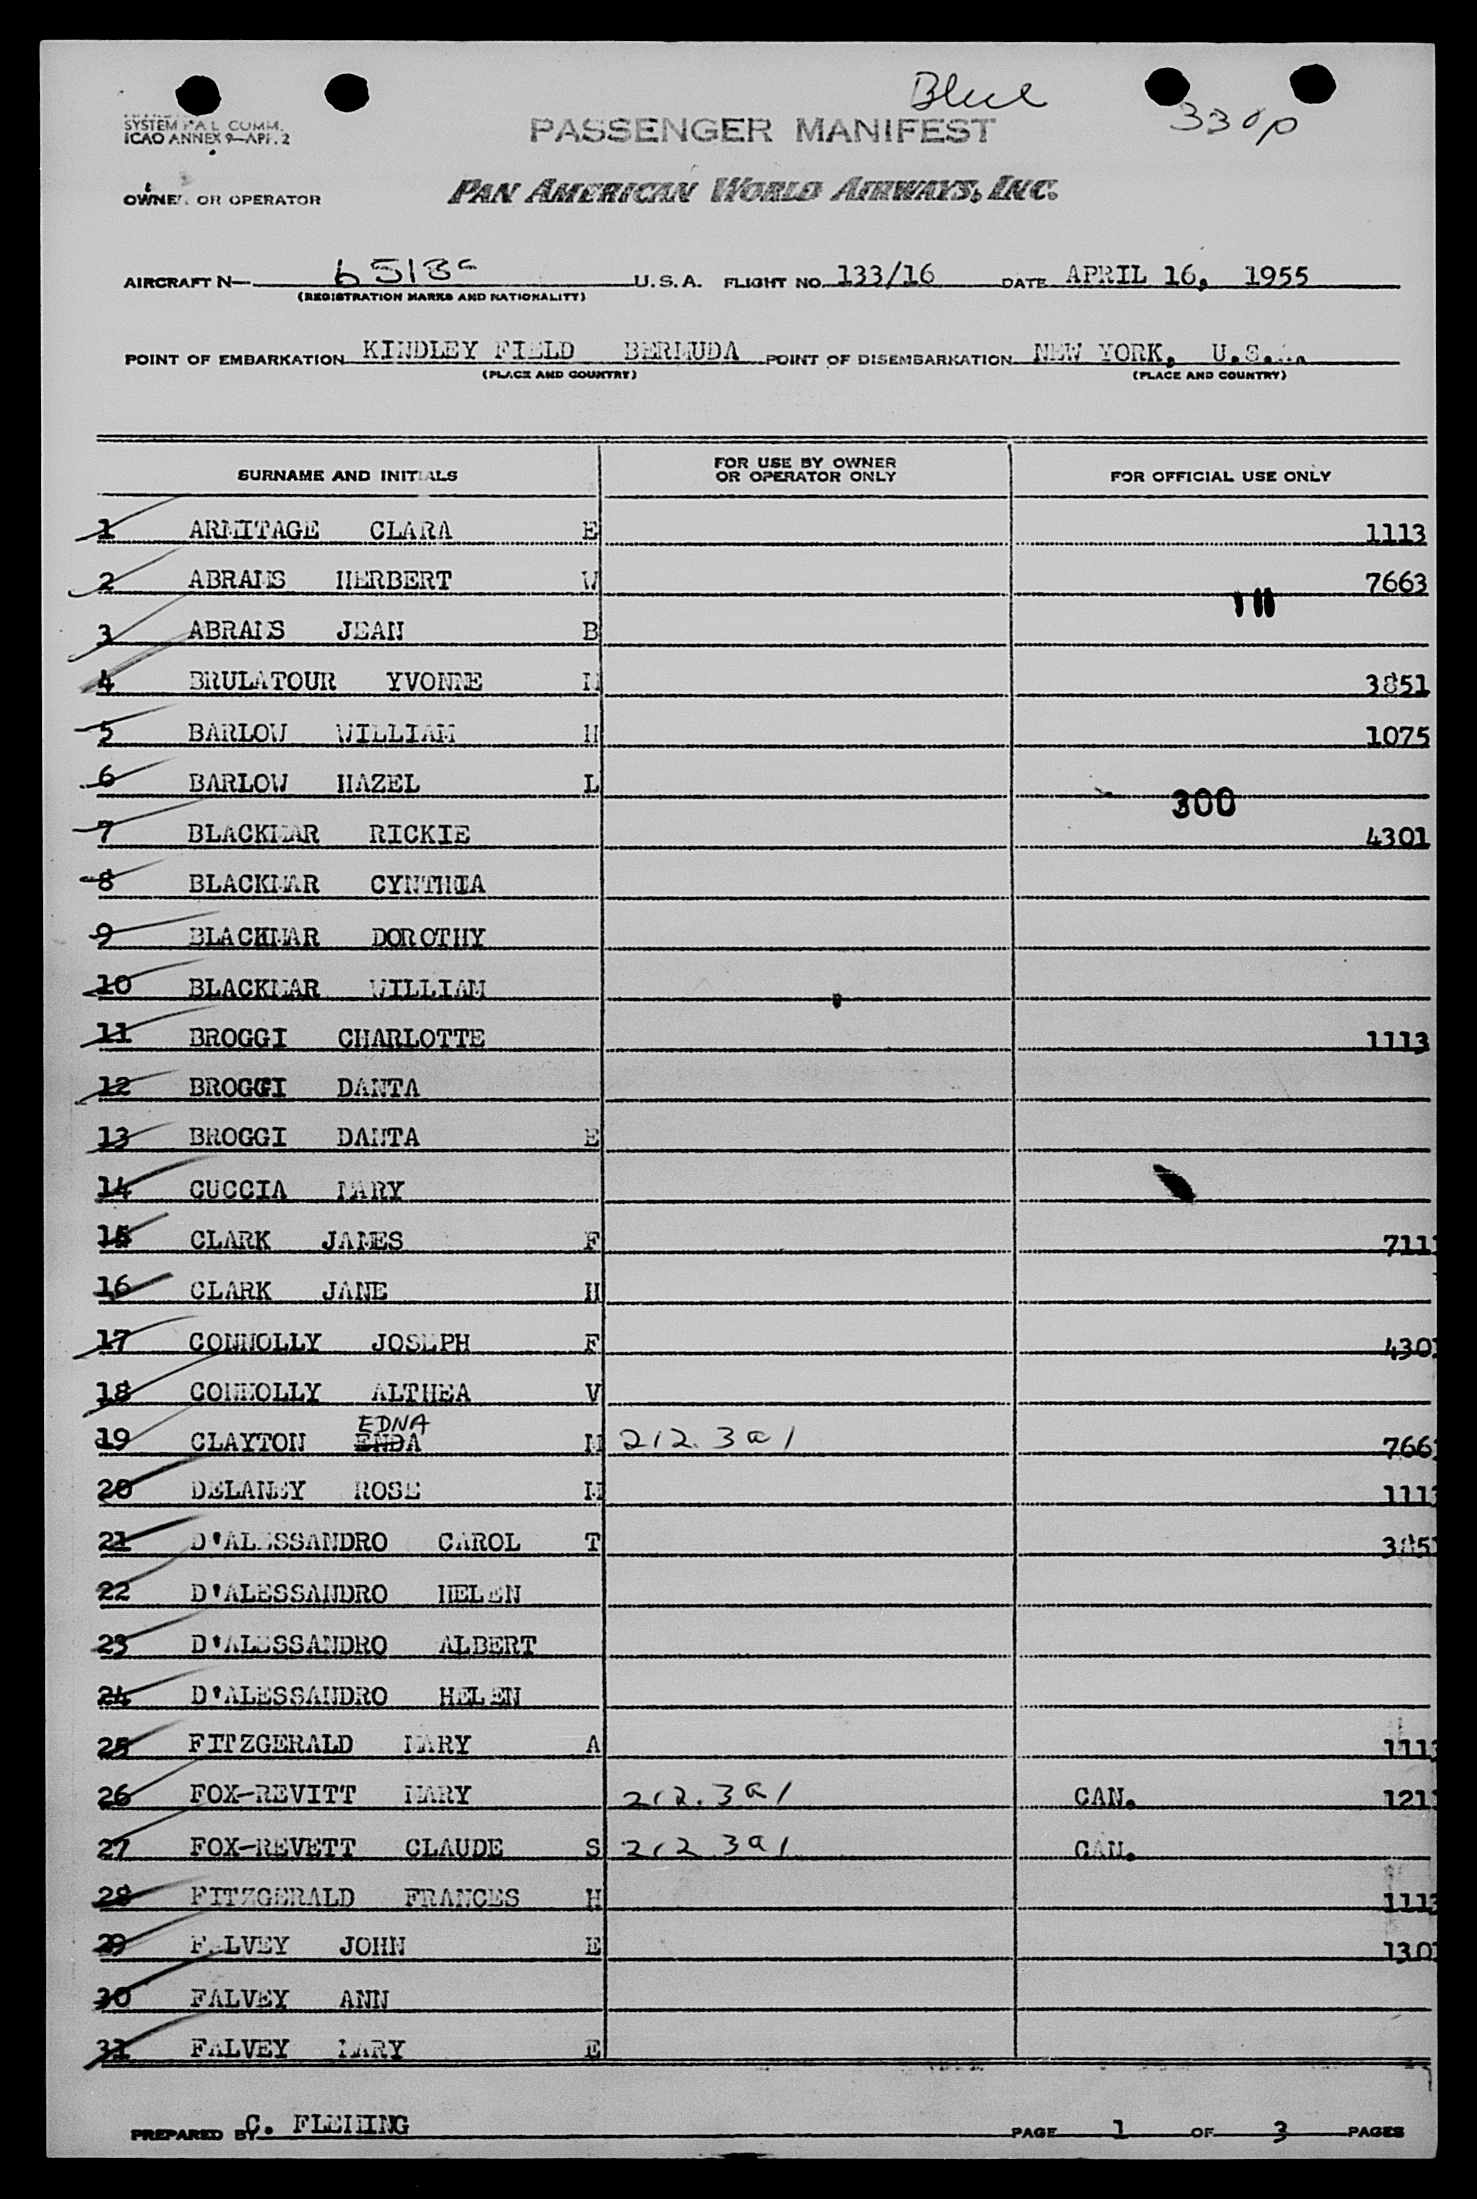 Blue
330p
SYSTEM COMM.
ICAO ANNEX 9—APP. 2
PASSENGER MANIFEST
OWNER OR OPERATOR PAN AMERICAN WORLD AIRWAYS, INC.
AIRCRAFT N— 6518c U.S.A. FLIGHT NO. 133/16 DATE APRIL 16, 1955
(REGISTRATION MARKS AND NATIONALITY)
POINT OF EMBARKATION KINDLEY FIELD BERMUDA POINT OF DISEMBARKATION NEW YORK, U.S.A.
(PLACE AND COUNTRY) (PLACE AND COUNTRY)
SURNAME AND INITIALS FOR USE BY OWNER OR OPERATOR ONLY FOR OFFICIAL USE ONLY
1 ARMITAGE CLARA E 1113
2 ABRAMS HERBERT W 7663
3 ABRAMS JEAN B
4 BRULATOUR YVONNE M 3851
5 BARLOW WILLIAM H 1075
6 BARLOW HAZEL L
300
7 BLACKMAR RICKIE 4301
8 BLACKMAR CYNTHIA
9 BLACKMAR DOROTHY
10 BLACKMAR WILLIAM
11 BROGGI CHARLOTTE 1113
12 BROGGI DANTA
13 BROGGI DANTA E
14 CUCCIA MARY
15 CLARK JAMES F 711
16 CLARK JANE H
17 CONNOLLY JOSEPH F 430
18 CONNOLLY ALTHEA V
EDNA
19 CLAYTON ENDA M 212.3a1 766
20 DELANEY ROSE M 1113
21 D'ALESSANDRO CAROL T 385
22 D'ALESSANDRO HELEN
23 D'ALESSANDRO ALBERT
24 D'ALESSANDRO HELEN
25 FITZGERALD MARY A 1113
26 FOX-REVITT MARY 212.3a1 CAN. 121
27 FOX-REVETT CLAUDE S 212 3a1 CAN.
28 FITZGERALD FRANCES H 1113
29 FALVEY JOHN E 130
30 FALVEY ANN
31 FALVEY MARY E
PREPARED BY C. FLEMING PAGE 1 OF 3 PAGES